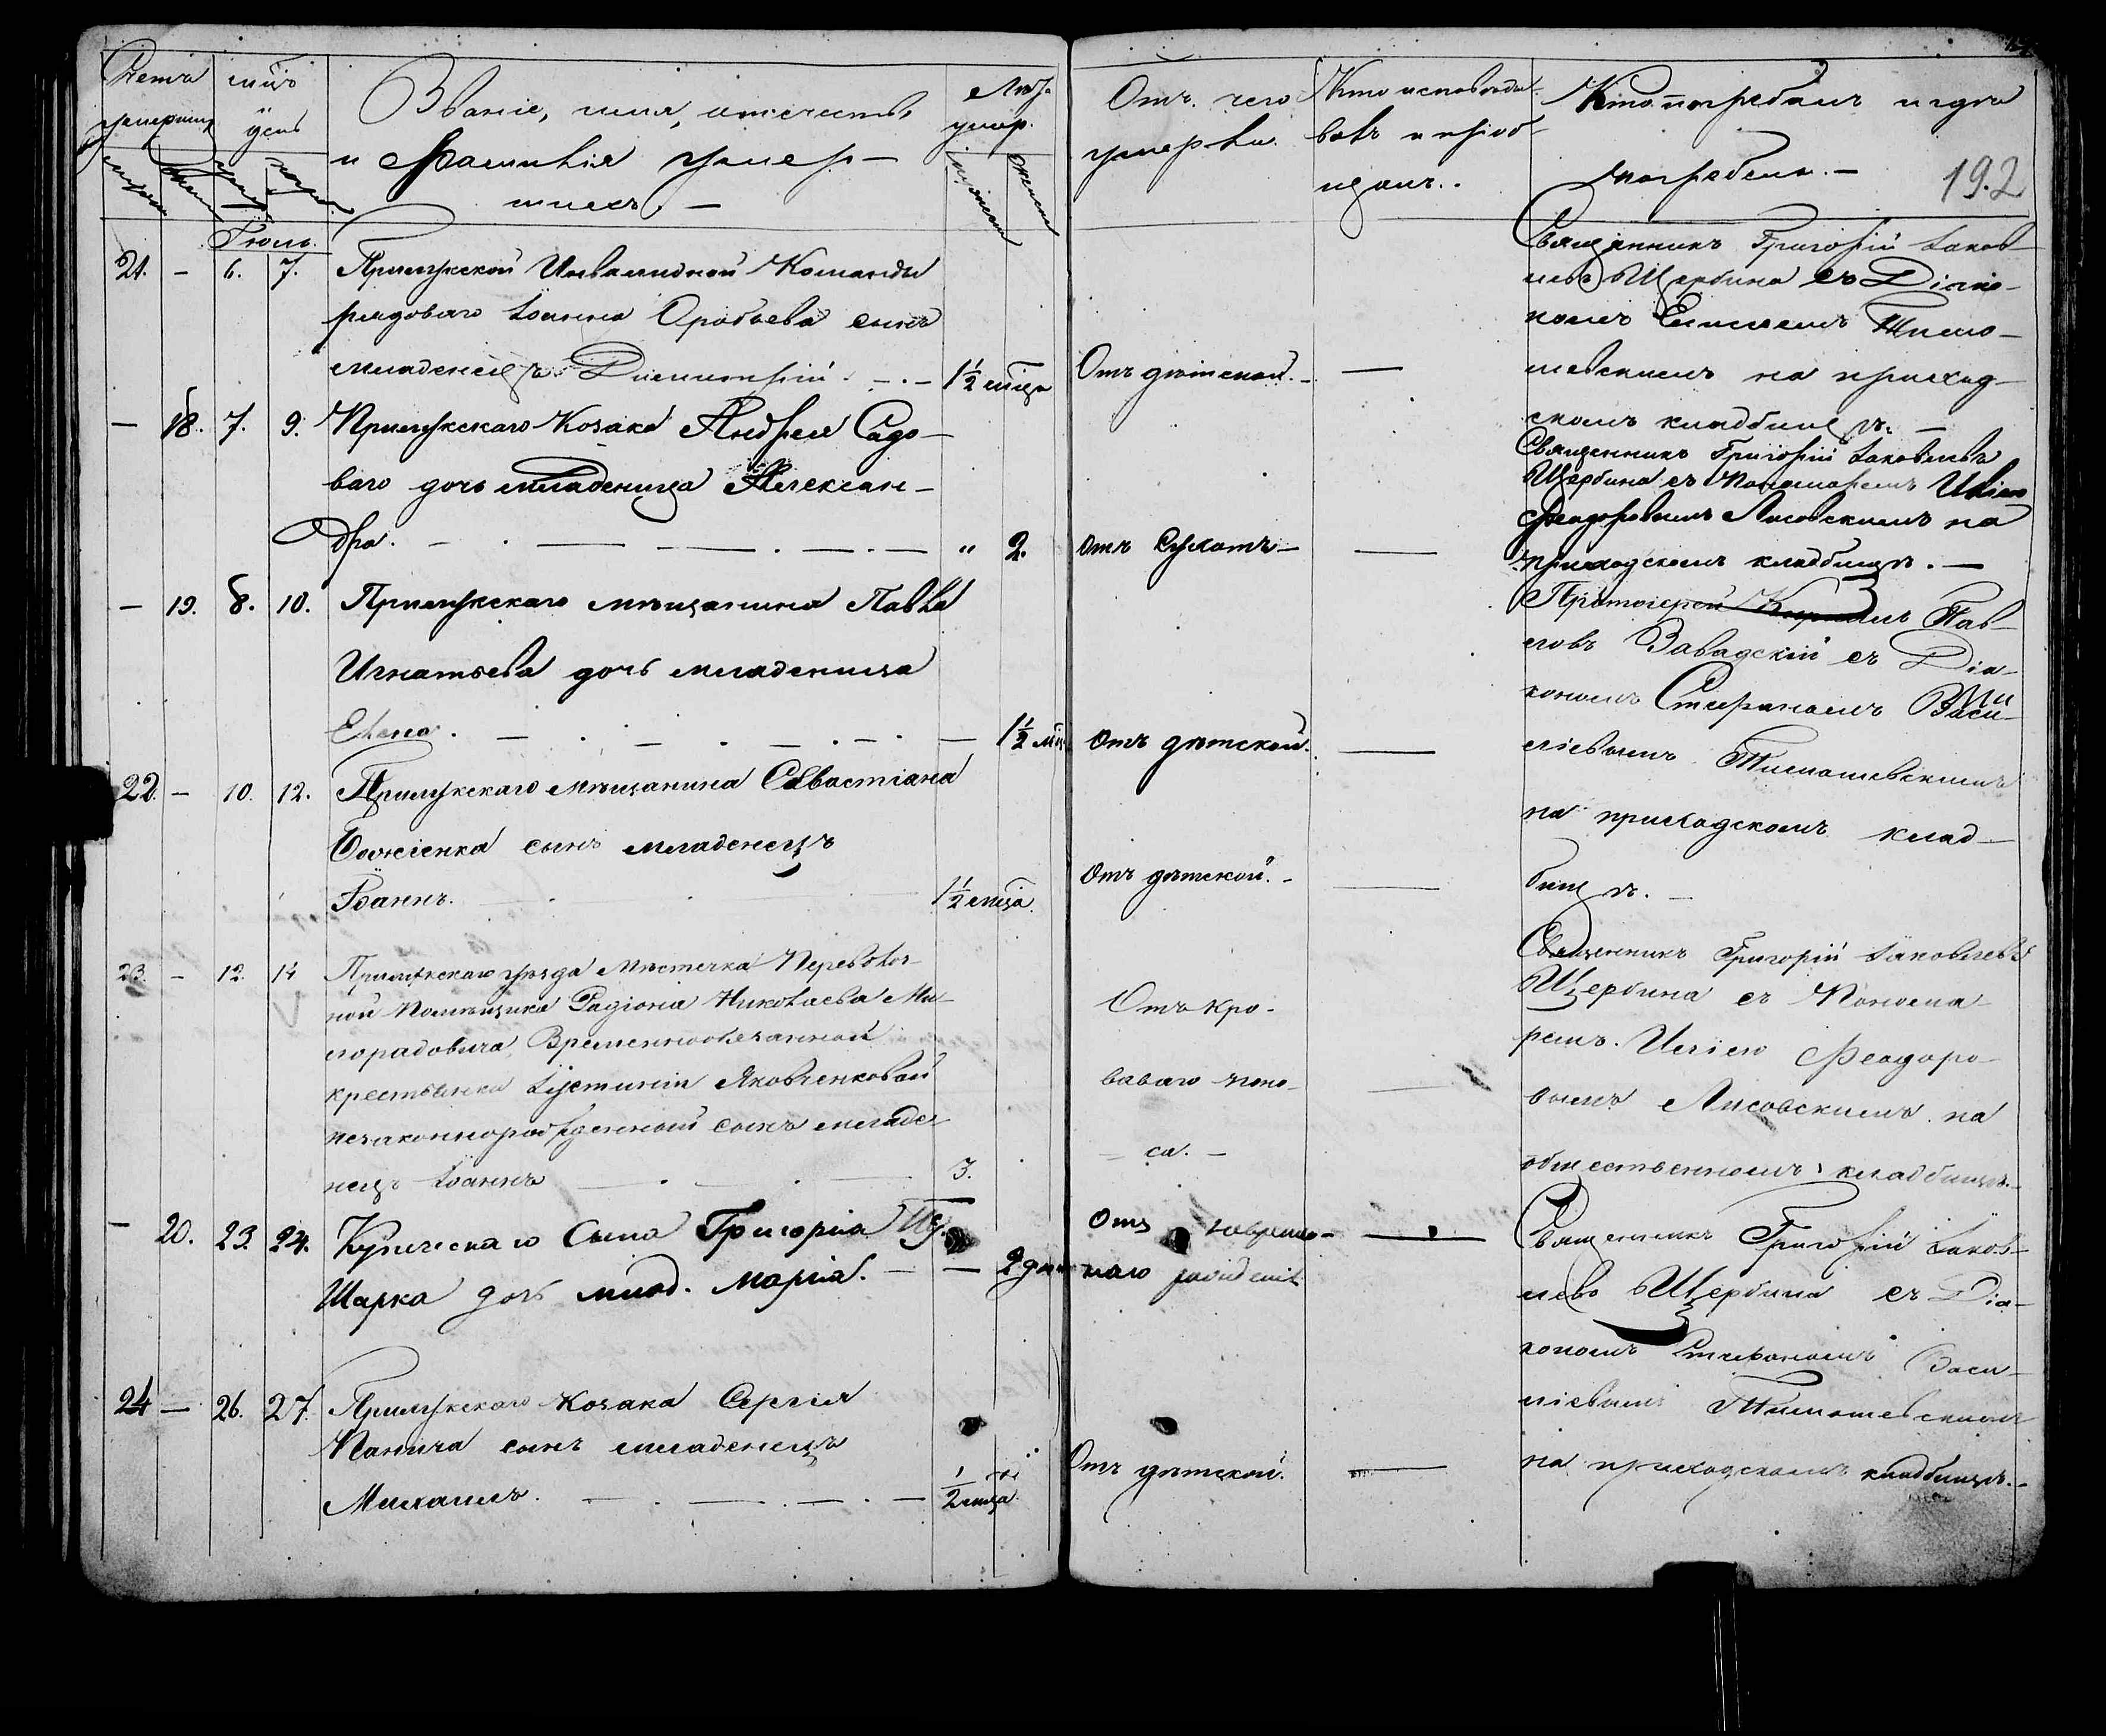 Счетъ умершихъ
мѣсяцъ
день
Званіе, имя, отечество,
и фамилія умер-
шихъ, —
Лѣта
умер.
Отъ чего
умерли.
Кто исповѣды-
валъ и пріоб-
щалъ.
Кто погребалъ и гдѣ
погребены. —
192
Іюль.
21. — 6. 7. Прилукской Инвалидной Команды
рядоваго Іоанна Оробьева сынъ
младенецъ Димитрій. — 1½ мѣца
Отъ дѣтской. —
Священникъ Григорій Іаков-
левъ Щербина съ Діако-
номъ Тимо-
шевскимъ на приход-
скомъ кладбищѣ. —
— 18. 7. 9. Прилукскаго Козака Андрея Садо-
ваго дочь младеница Александ-
дра. — " 2.
Отъ Сухотъ —
Священникъ Григорій Іаковлевъ
Щербина съ Пономаремъ Иліею
Феодоровымъ Лисовскимъ на
приходскомъ кладбищѣ. —
— 19. 8. 10. Прилукскаго мѣщанина Павла
Игнатьева дочь младеница
Елена. — 1½ мѣц
Отъ дѣтской.
Протоіерей Пав-
ловъ Завадскій съ Діа-
кономъ Стефаномъ Васи-
ліевымъ Тимошевскимъ
на приходскомъ клад-
бищѣ. —
22. — 10. 12. Прилукскаго мѣщанина Севастіана
Божіенка сынъ младенецъ
Іоаннъ. 1½ мѣца.
Отъ дѣтской. —
23. — 12. 14 Прилукскаго уѣзда мѣстечка Переволоч-
ной Помѣщика Радіона Николаева Ми-
лорадовича, Временнообязанной
крестьянки Іустиніи Яковченковой
незаконнорожденный сынъ младе-
нецъ Іоаннъ — 3.
Отъ кро-
ваваго поно-
са. —
Священникъ Григорій Іаковлевъ
Щербина съ Понома-
ремъ Иліею Феодоро-
вымъ Лисовскимъ на
общественномъ кладбищѣ. —
— 20. 23. 24. Купческаго Сына Григорія
Шарка дочь млад. Марія. — — 2 дня
Отъ
наго
Священникъ Григорій Іаков-
левъ Щербина съ Діа-
кономъ Стефаномъ Васи-
ліевымъ Тимошевскимъ
на приходскомъ кладбищѣ. —
24 — 26. 27. Прилукскаго козака Сергія
Панича сынъ младенецъ
Михаилъ. — ½ мѣца
Отъ дѣтской.